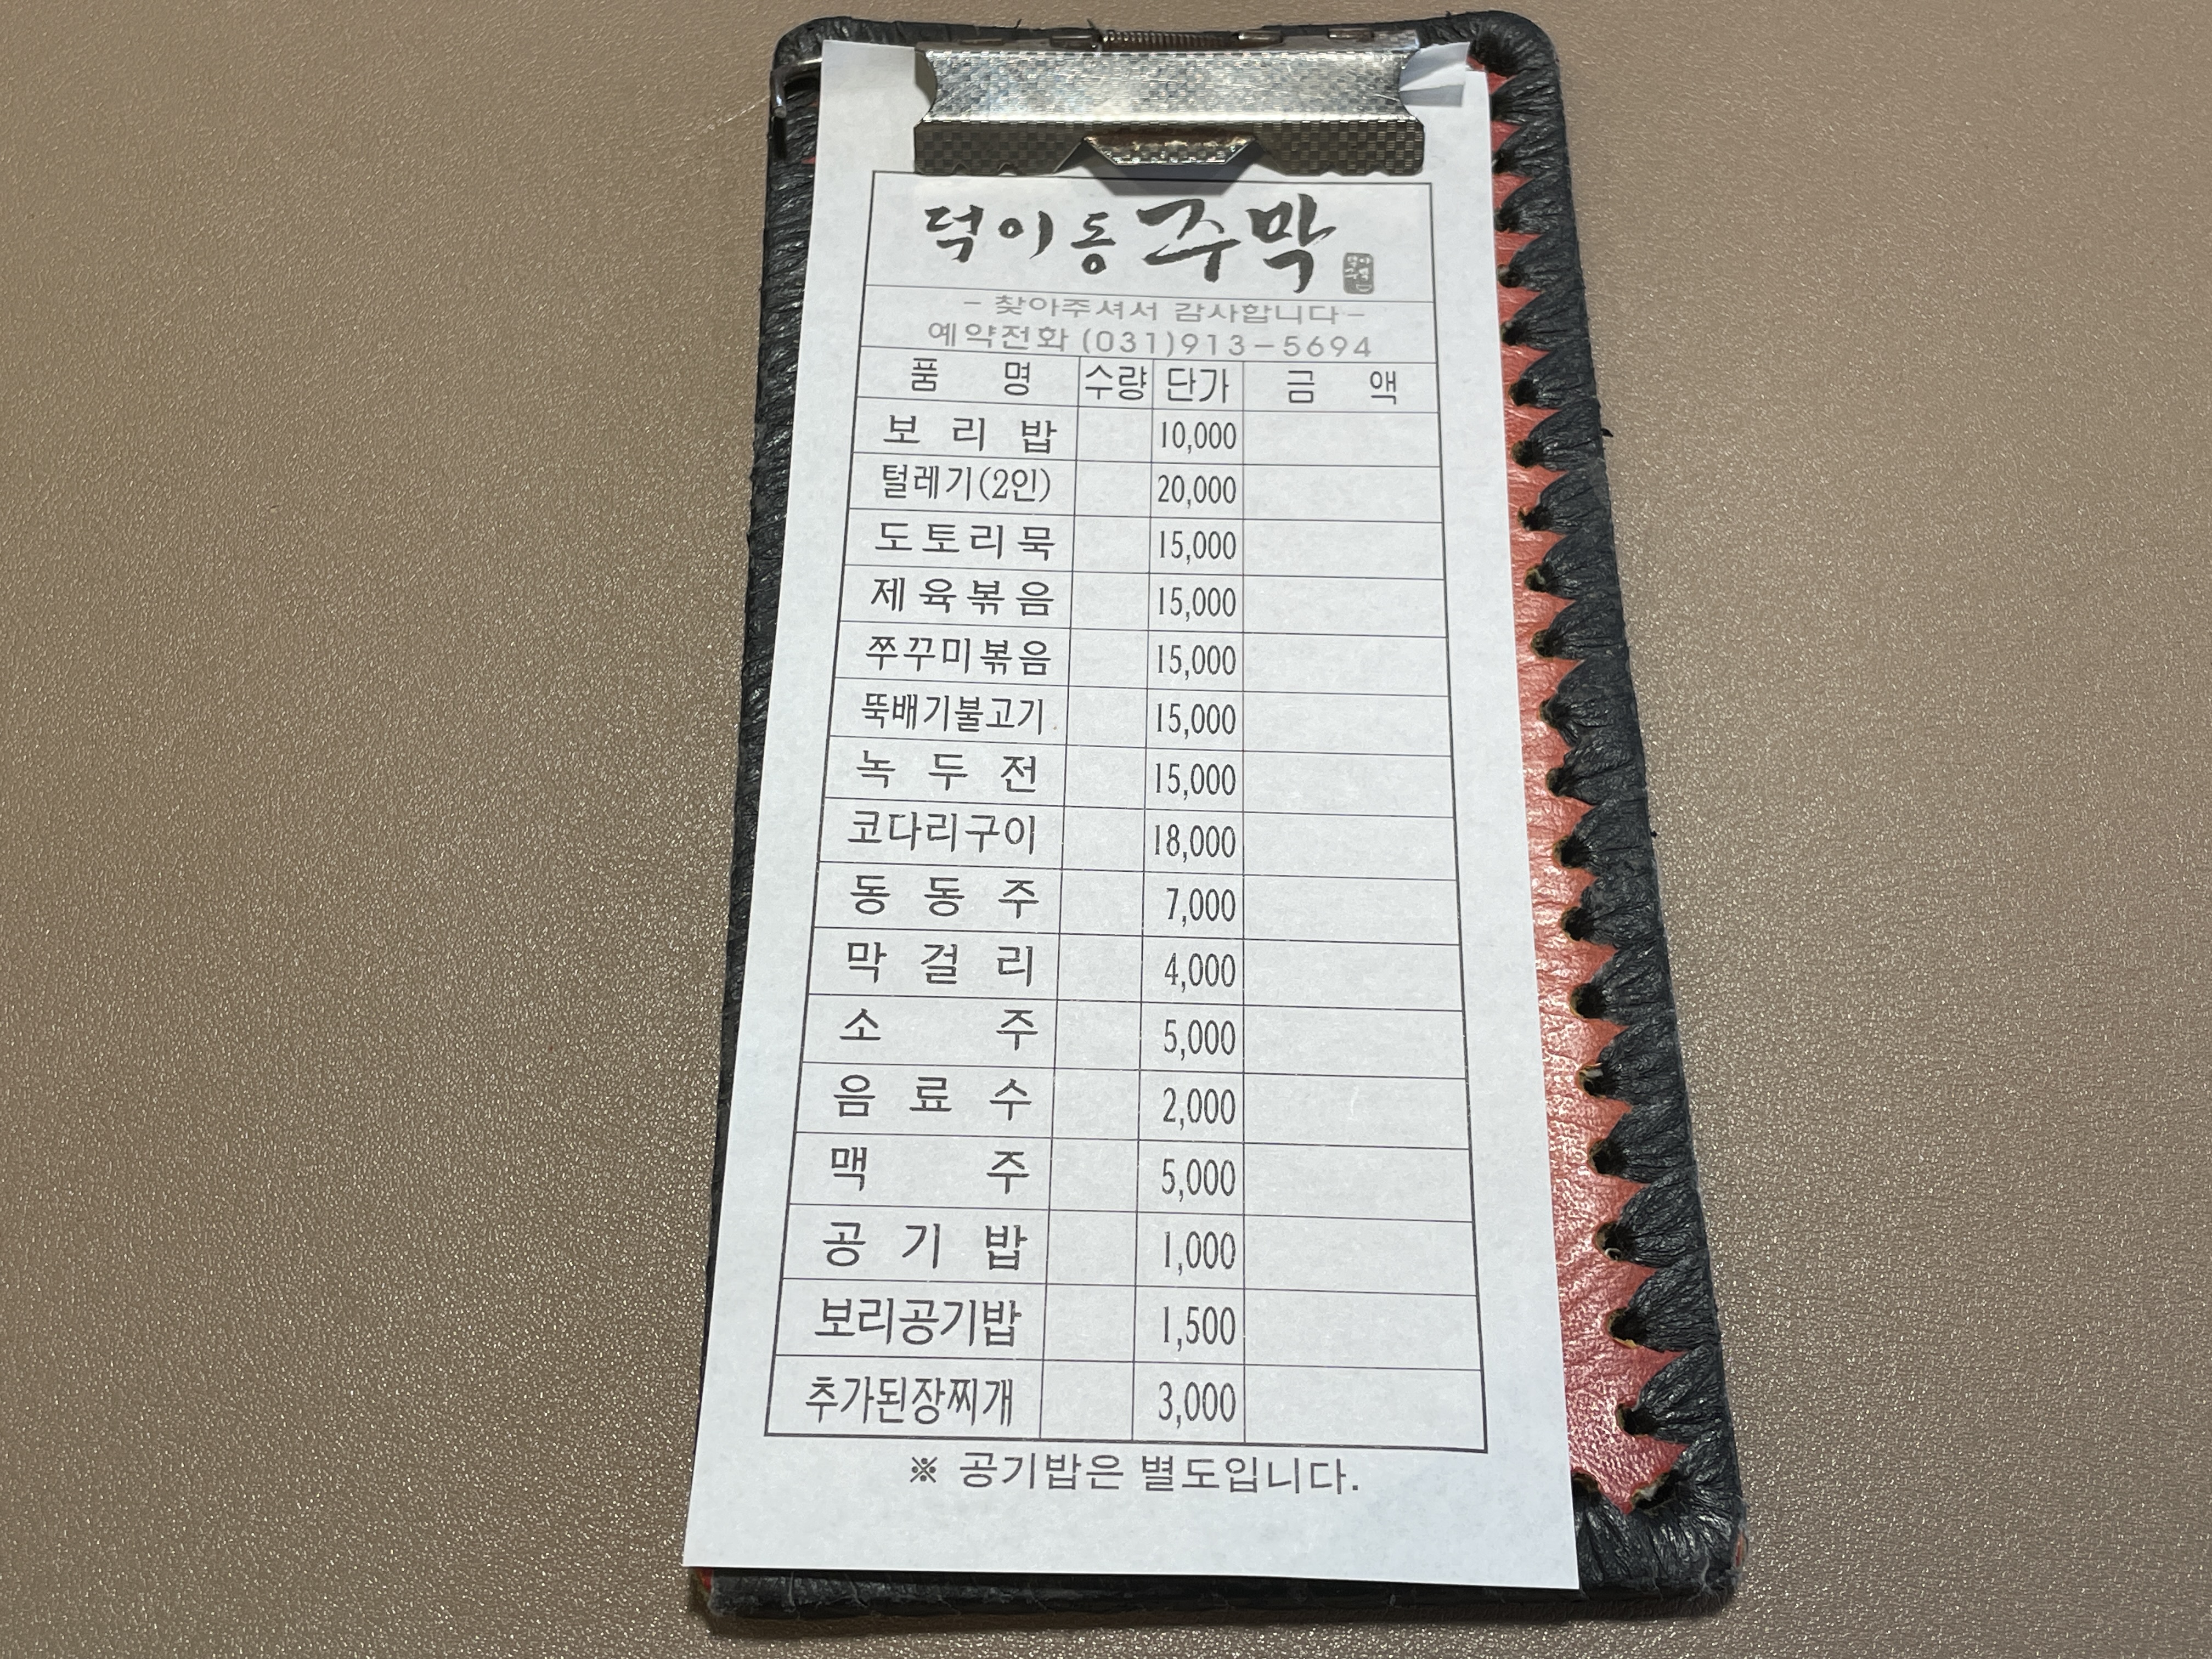 덕이동 주막
- 찾아주셔서 감사합니다 -
예약전화 (031)913-5694
품명 수량 단가 금액
보리밥 10,000
털레기(2인) 20,000
도토리묵 15,000
제육볶음 15,000
쭈꾸미볶음 15,000
뚝배기불고기 15,000
녹두전 15,000
코다리구이 18,000
동동주 7,000
막걸리 4,000
소주 5,000
음료수 2,000
맥주 5,000
공기밥 1,000
보리공기밥 1,500
추가된장찌개 3,000
※ 공기밥은 별도입니다.